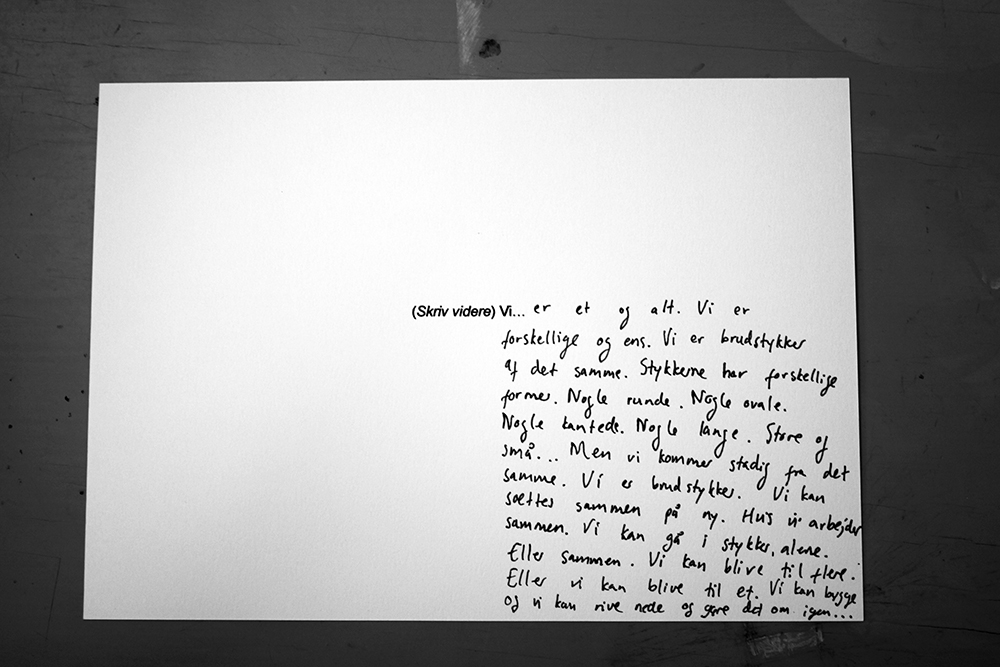 (Skriv videre) Vi... er et og alt. Vi er
forskellige og ens. Vi er brudstykker
af det samme. Stykkerne har forskellige
former. Nogle runde. Nogle ovale.
Nogle kantede. Nogle lange. Store og
små... Men vi kommer stadig fra det
samme. Vi er brudstykker. Vi kan
sættes sammen på ny. Hvis vi arbejder
sammen. Vi kan gå i stykker, alene.
Eller sammen. Vi kan blive til flere.
Eller vi kan blive til et. Vi kan bygge
og vi kan rive nede og gøre det om igen...